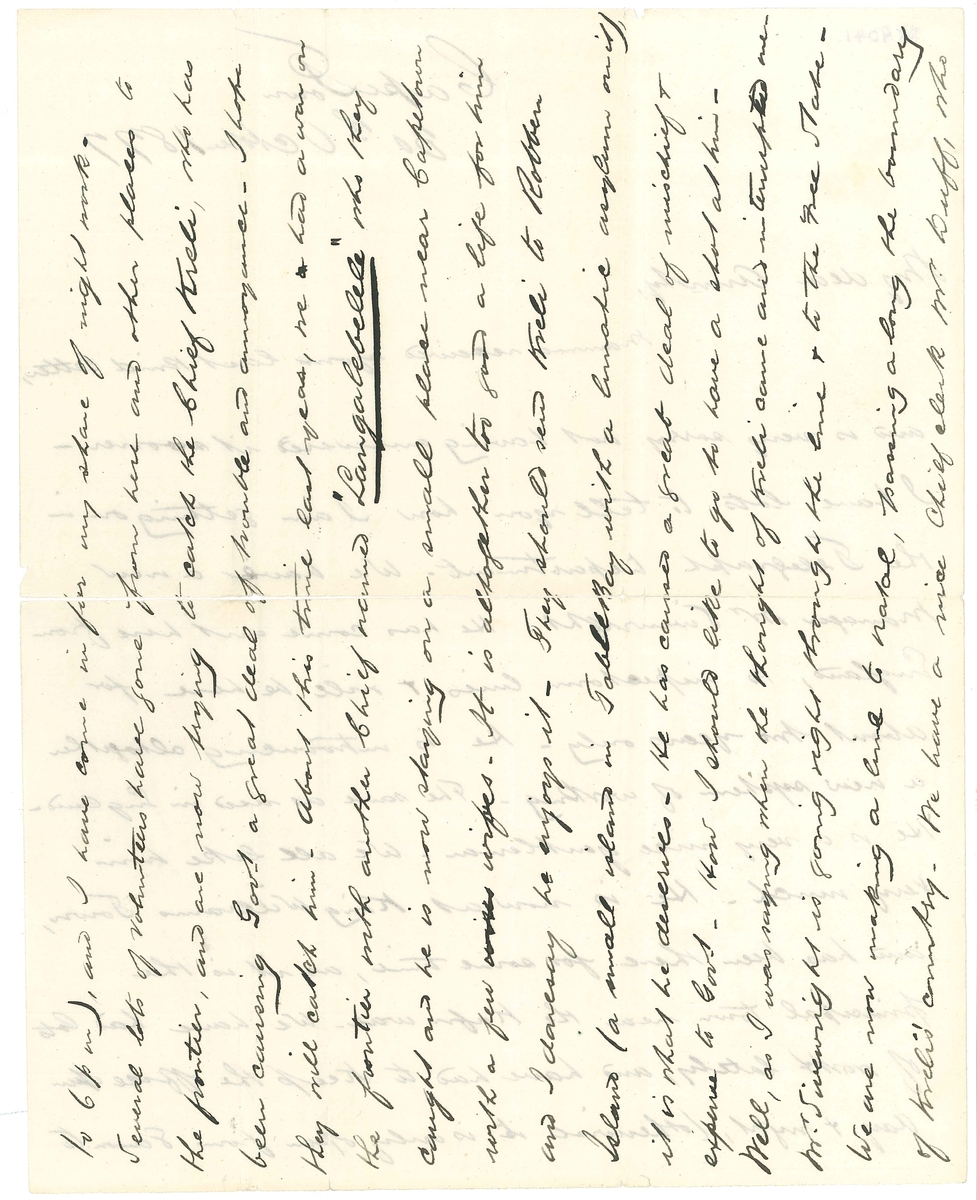 to 6 pm), and I have come in for my share of night work.
Several lots of Volunteers have gone from here and other places to
the frontier, and are now trying to catch the Chief Kreli, who has
been causing Govt a great deal of trouble and annoyance - I hope
they will catch him - About this time last year, we had a war on
the frontier with another Chief named "Langalebelele" who they
caught and he is now staying on a small place near Capetown
with a few wives - It is altogether too good a life for him
and I daresay he enjoys it - They should send Kreli to Robben
Island (a small island in Table Bay with a lunatic asylum on it),
it is what he deserves - He has caused a great deal of mischief &
expense to Govt - How I should like to go to have a shot at him -
Well, as I was saying when the thought of Kreli came and interrupted me -
Mr. Sivewright is going right through the line & to the Free State -
We are now making a line to Natal, passing along the boundary
of Kreli's country - We have a nice Chief clerk Mr. Duff, who